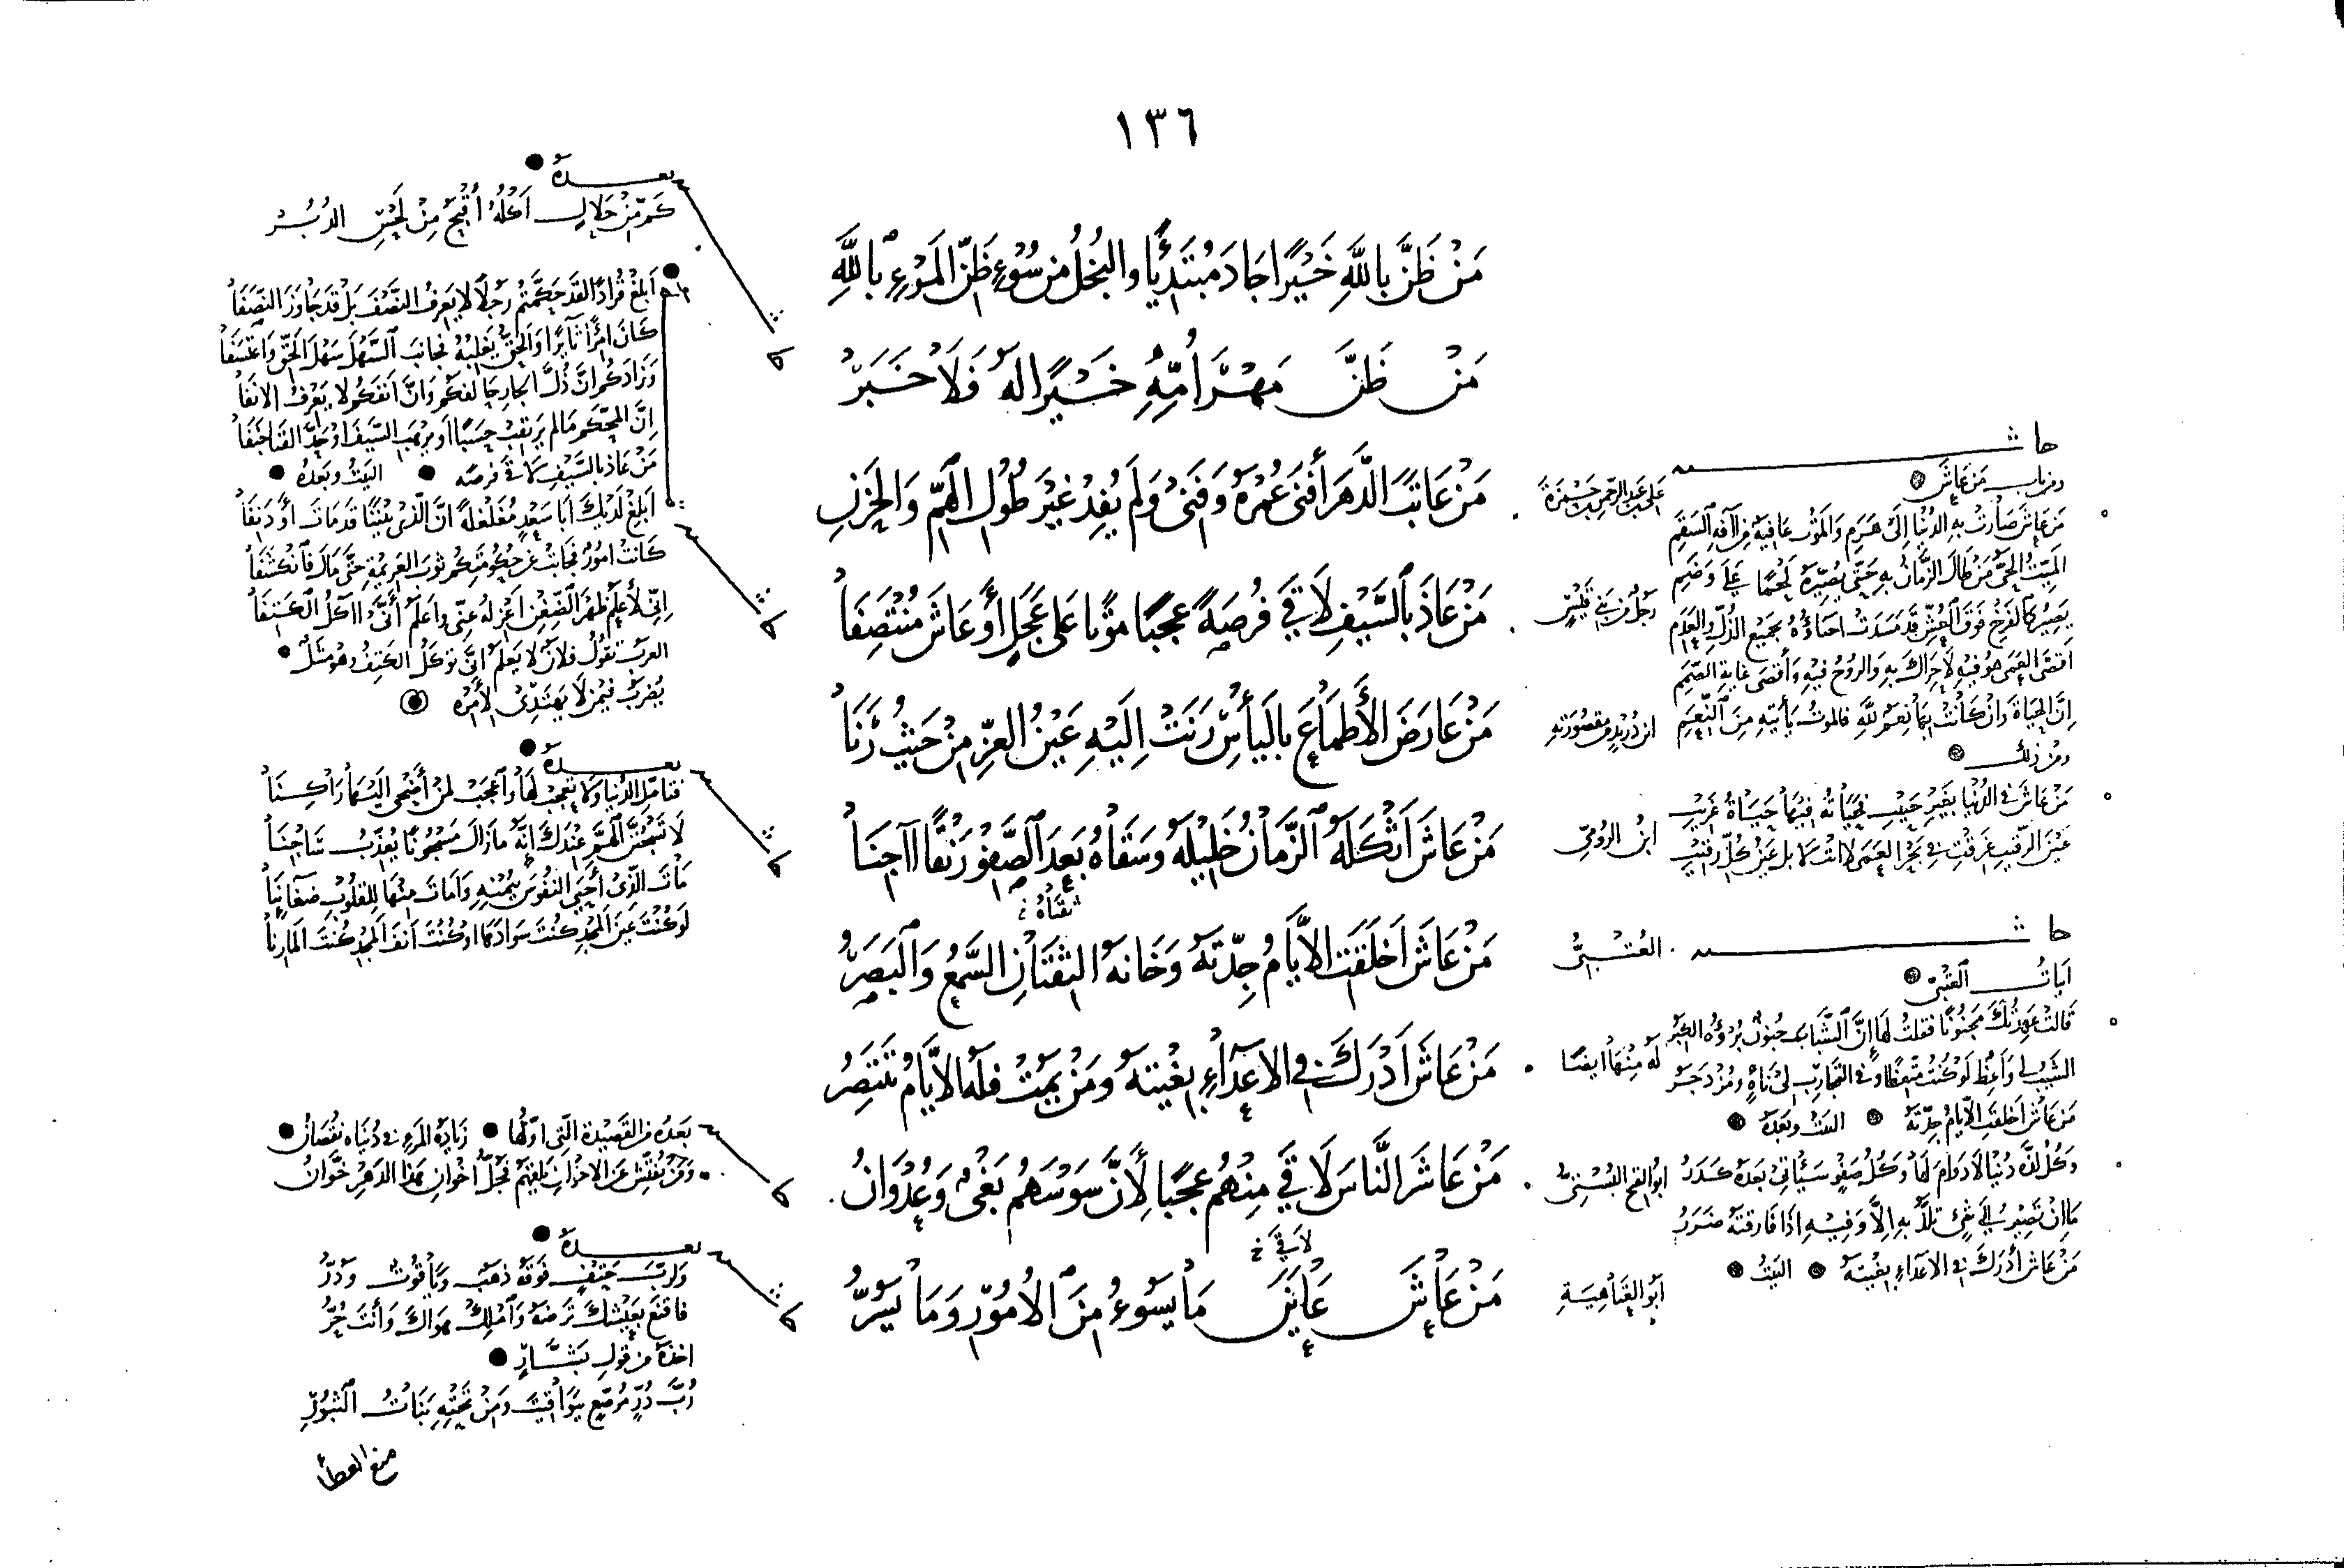 ١٣٦
مَنْ ظَنَّ بِاللَّهِ خَيْرًا جَادَ مُبْتَدِئًا وَالبُخْلُ مِنْ سُوْءِ ظَنِّ المَرْءِ بِاللَّهِ
مَنْ ظَنَّ مَهْرَ أُمِّهِ خَيْرًا لَهُ فَلَا خَبَرْ
مَنْ عَاتَبَ الدَّهْرَ أَفْنَى عُمْرَهُ وَفَنَى وَلَمْ يُفِدْ غَيْرَ طُوْلِ الهَمِّ وَالحَزَنِ
مَنْ عَاذَ بِالسَّيْفِ لَاقَى فُرْصَةً عَجَبًا مَوْتًا عَلَى عَجَلٍ أَوْ عَاشَ مُنْتَصِفَا
مَنْ عَارَضَ الأَطْمَاعَ بِاليَأْسِ رَنَتْ إِلَيْهِ عَيْنُ العِزِّ مِنْ حَيْثُ رَنَا
مَنْ عَاشَ أَثْكَلَهُ الزَّمَانُ خَلِيْلَهُ وَسَقَاهُ بَعْدَ الصَّفْوِ رَنْقًا آجِنَا
مَنْ عَاشَ أَخْلَقَتِ الأَيَّامُ جِدَّتَهُ وَخَانَهُ الثِّقَتَانِ السَّمْعُ وَالبَصَرُ
ثقتاه خ
مَنْ عَاشَ أَدْرَكَ فِي الأَعْدَاءِ بِغْيَتَهُ وَمَنْ يَمُتْ فَلَهُ الأَيَّامُ تَنْتَصِرُ
مَنْ عَاشَرَ النَّاسَ لَاقَى مِنْهُمُ عَجَبًا لِأَنَّ سُوْسَهُمُ بَغْيٌ وَعُدْوَانُ
مَنْ عَاشَ عَايَنَ مَا يَسُوْءُ مِنَ الأُمُوْرِ وَمَا يَسُرُّ
لاقى خ
حاشية
ومن باب مَنْ عَاشَ
مَنْ عَاشَ صَارَتْ بِهِ الدُّنْيَا إِلَى هَرَمِ وَالمَوْتُ عَافِيَةٌ مِنْ آفَةِ السَّقَمِ
المَيِّتُ الحَيُّ مَنْ طَالَ الزَّمَانُ بِهِ حَتَّى يُصَيِّرَهُ لَحْمًا عَلَى وَضَمِ
يَصِيْرُ كَالفَرْخِ فَوْقَ العُشِّ قَدْ فَسَدَتْ أَحْشَاؤُهُ بِجَمِيْعِ الذُّلِّ وَالعَدَمِ
إِنَّ الحَيَاةَ وَإِنْ كَانَتْ بِهَا نِعَمٌ لِلَّهِ فَالمَوْتُ يَأْتِيْهِ مِنَ النِّعَمِ
ومن ذلك
مَنْ عَاشَ فِي الدُّنْيَا بِغَيْرِ حَبِيْبِ فَحَيَاتُهُ فِيْهَا حَيَاةُ غَرِيْبِ
عَيْنَ الرَّقِيْبِ غَرِقْتِ فِي بَحْرِ العَمَى لَا أَنْتِ لَا بَلْ عَيْنُ كُلِّ رَقِيْبِ
حاشية
أبيات العُتْبِيِّ
قَالَتْ عَهِدْتُكَ مَجْنُوْنًا فَقُلْتُ لَهَا إِنَّ الشَّبَابَ جُنُوْنٌ بُرْؤُهُ الكِبَرُ
الشَّيْبُ لِي وَاعِظٌ لَوْ كُنْتُ مُتَّعِظًا وَفِي التَّجَارِبِ لِي نَاهٍ وَمُزْدَجَرُ
مَنْ عَاشَ أَخْلَقَتِ الأَيَّامُ جِدَّتَهُ البيت وبعده
وَكُلُّ لَذَّةِ دُنْيَا لَا دَوَامَ لَهَا وَكُلُّ صَفْوٍ سَيَأْتِي بَعْدَهُ كَدَرُ
مَا إِنْ تَصِيْرُ إِلَى شَيْءٍ تَلَذُّ بِهِ إِلَّا وَفِيْهِ إِذَا فَارَقْتَهُ ضَرَرُ
مَنْ عَاشَ أَدْرَكَ فِي الأَعْدَاءِ بِغْيَتَهُ البيت
علي بن عبد الرحمن بن حمزة
رجل من بني قيس
ابن دريد من مقصورته
ابن الرومي
العُتْبِيُّ
له منها أيضًا
أبو الفتح البُسْتِيُّ
أبو العتاهية
بعده
كَمْ مِنْ حَلَالٍ أَكْلُهُ أَقْبَحُ مِنْ لَحْسِ الدُّبُرْ
كَانَ امْرَأً ثَائِرًا وَالحَقُّ يَغْلِبُهُ فَجَانَبَ السَّهْلَ سَهْلَ الحَقِّ وَاعْتَسَفَا
مَنْ عَاذَ بِالسَّيْفِ لَاقَى فُرْصَةً البيت وبعده
أَبْلِغْ لَدَيْكَ أَبَا سَعْدٍ مُغَلْغَلَةً أَنَّ الَّذِي بَيْنَنَا قَدْ مَاتَ أَوْ دَنِفَا
كَانَتْ أُمُوْرٌ فَجَابَتْ عَنْ حُكُوْمَتِكُمْ ثَوْبَ العَزِيْمَةِ حَتَّى مَالَ فَانْكَشَفَا
إِنِّي لَأَعْلَمُ ظَهْرَ الضِّغْنِ أَعْزِلُهُ عَنِّي وَأَعْلَمُ أَنِّي آكُلُ الكَتِفَا
العرب تقول فلان لا يعلم أنى تؤكل الكتف وهو مثل
يضرب فيمن لا يهتدي لأمره
بعده
فَتَأَمَّلِ الدُّنْيَا وَلَا تَعْجَبْ لَهَا وَاعْجَبْ لِمَنْ أَضْحَى إِلَيْهَا رَاكِنَا
لَا تَسْجُنَنَّ الهَمَّ عِنْدَكَ إِنَّهُ مَا زَالَ مَسْجُوْنًا يُعَذِّبُ سَاجِنَا
مَاتَ الَّذِي أَحْيَى النُّفُوْسَ بِيُمْنِهِ وَأَمَاتَ مِنْهَا لِلْقُلُوْبِ ضَغَائِنَا
لَوْ كُنْتَ عَيْنَ المَجْدِ كُنْتَ سَوَادَهَا أَوْ كُنْتَ أَنْفَ المَجْدِ كُنْتَ المَارِنَا
بعده من القصيدة التي أولها زيادة المرء في دنياه نقصان
وَمَنْ يُفَتِّشْ عَنِ الإِخْوَانِ يَلْقَهُمْ فَجُلُّ إِخْوَانِ هَذَا الدَّهْرِ خَوَّانُ
بعده
وَلَرُبَّ حَتْفٍ فَوْقَهُ ذَهَبٌ وَيَاقُوْتٌ وَدُرُّ
فَاقْنَعْ بِعَيْشِكَ تَرْضَهُ وَامْلِكْ هَوَاكَ وَأَنْتَ حُرُّ
أخذه من قول بَشَّارٍ
رُبَّ دُرٍّ مُرَصَّعٍ بِيَوَاقِيْتَ وَمِنْ تَحْتِهِ بَنَاتُ الثُّبُوْرِ